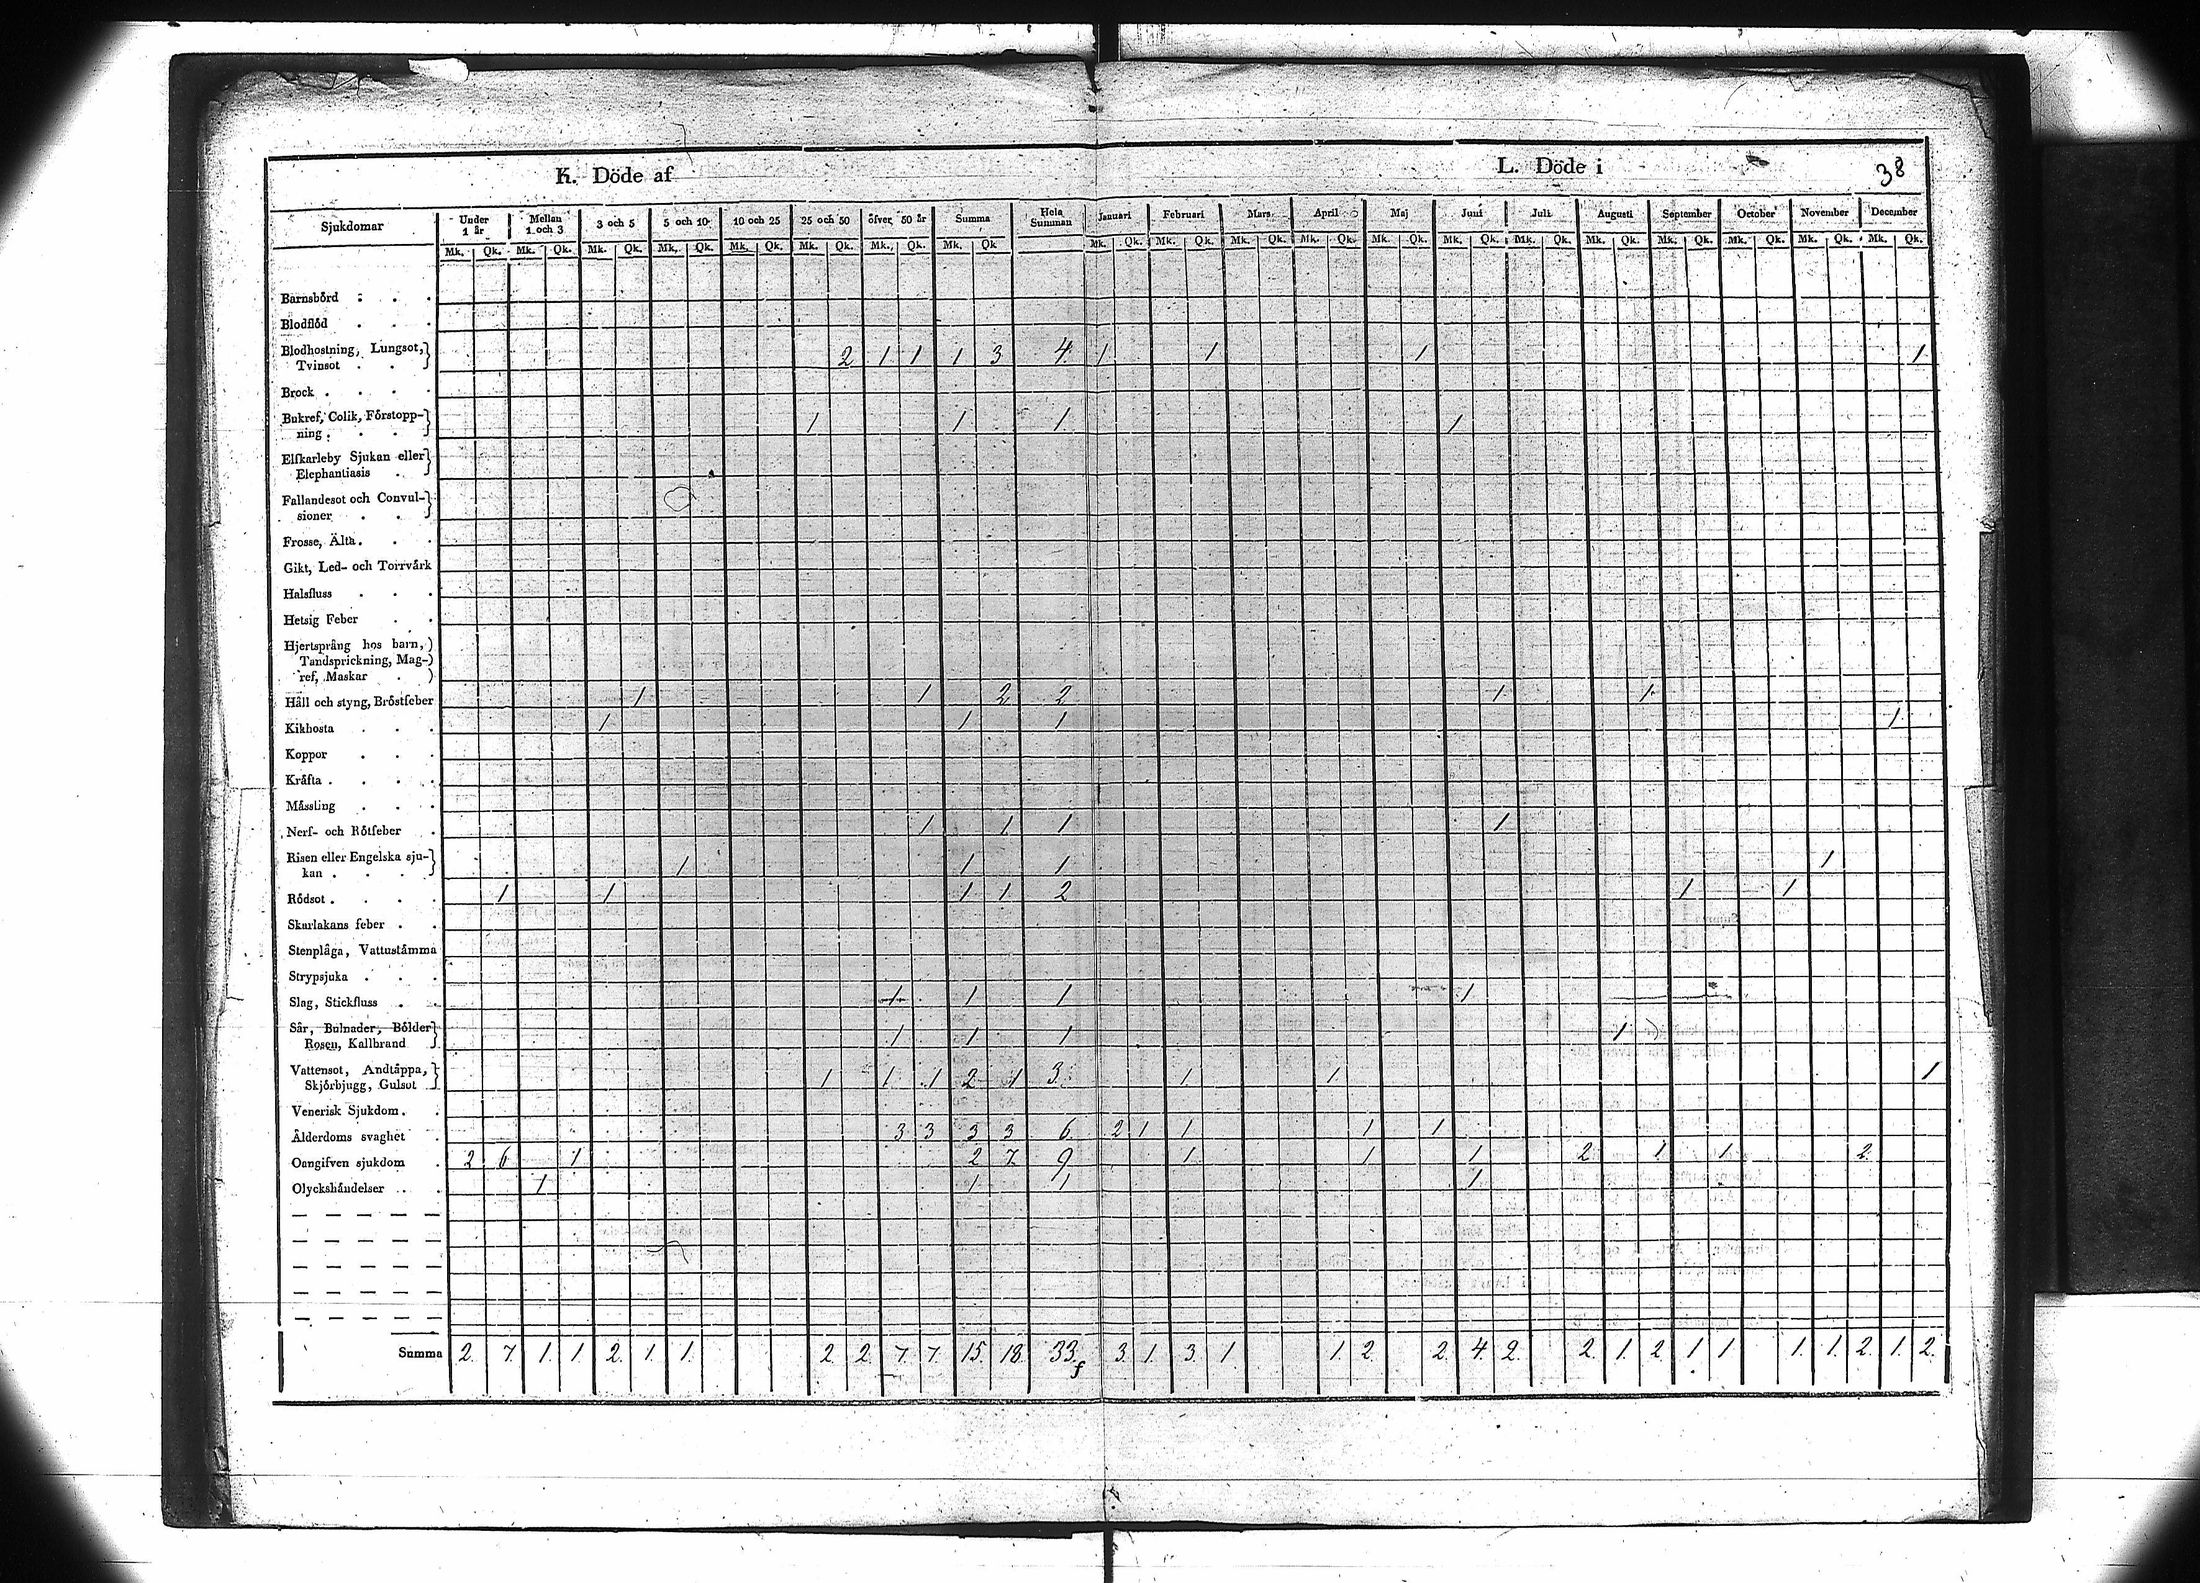 K. Döde af L. Döde i 38
Sjukdomar Under 1 år Mellan 1 och 3 3 och 5 5 och 10 10 och 25 25 och 50 öfver 50 år Summa Hela Summan Januari Februari Mars April Maj Juni Juli Augusti September October November December
Mk. Qk. Mk. Qk. Mk. Qk. Mk. Qk. Mk. Qk. Mk. Qk. Mk. Qk. Mk. Qk Mk. Qk. Mk. Qk. Mk. Qk. Mk. Qk. Mk. Qk. Mk. Qk. Mk. Qk. Mk. Qk. Mk. Qk. Mk. Qk. Mk. Qk. Mk. Qk.
Barnsbörd
Blodflöd
Blodhostning, Lungsot,
Tvinsot 2 1 1 1 3 4 1 1 1 1
Brock
Bukref, Colik, Förstopp-
ning 1 1 1 1
Elfkarleby Sjukan eller
Elephantiasis
Fallandesot och Convul-
sioner
Frosse, Älta
Gikt, Led- och Torrvärk
Halsfluss
Hetsig Feber
Hjertsprång hos barn,
Tandsprickning, Mag-
ref, Maskar
Håll och styng, Bröstfeber 1 1 2 2 1 1
Kikhosta 1 1 1 1
Koppor
Kräfta
Mässling
Nerf- och Rötfeber 1 1 1 1
Risen eller Engelska sju-
kan 1 1 1 1
Rödsot 1 1 1 1 2 1 1
Skarlakans feber
Stenplåga, Vattustämma
Strypsjuka
Slag, Stickfluss 1 1 1 1
Sår, Bulnader, Bölder
Rosen, Kallbrand 1 1 1 1
Vattensot, Andtäppa,
Skjörbjugg, Gulsot 1 1 1 2 1 3 1 1 1
Venerisk Sjukdom
Ålderdoms svaghet 3 3 3 3 6 2 1 1 1 1
Oangifven sjukdom 2 6 1 2 7 9 1 1 1 2 1 1 2
Olyckshändelser 1 1 1 1
Summa 2. 7. 1. 1. 2. 1. 1. 2. 2. 7. 7. 15. 18. 33. 3. 1. 3. 1 1. 2. 2. 4. 2. 2. 1. 2. 1. 1. 1. 1. 2. 1. 2.